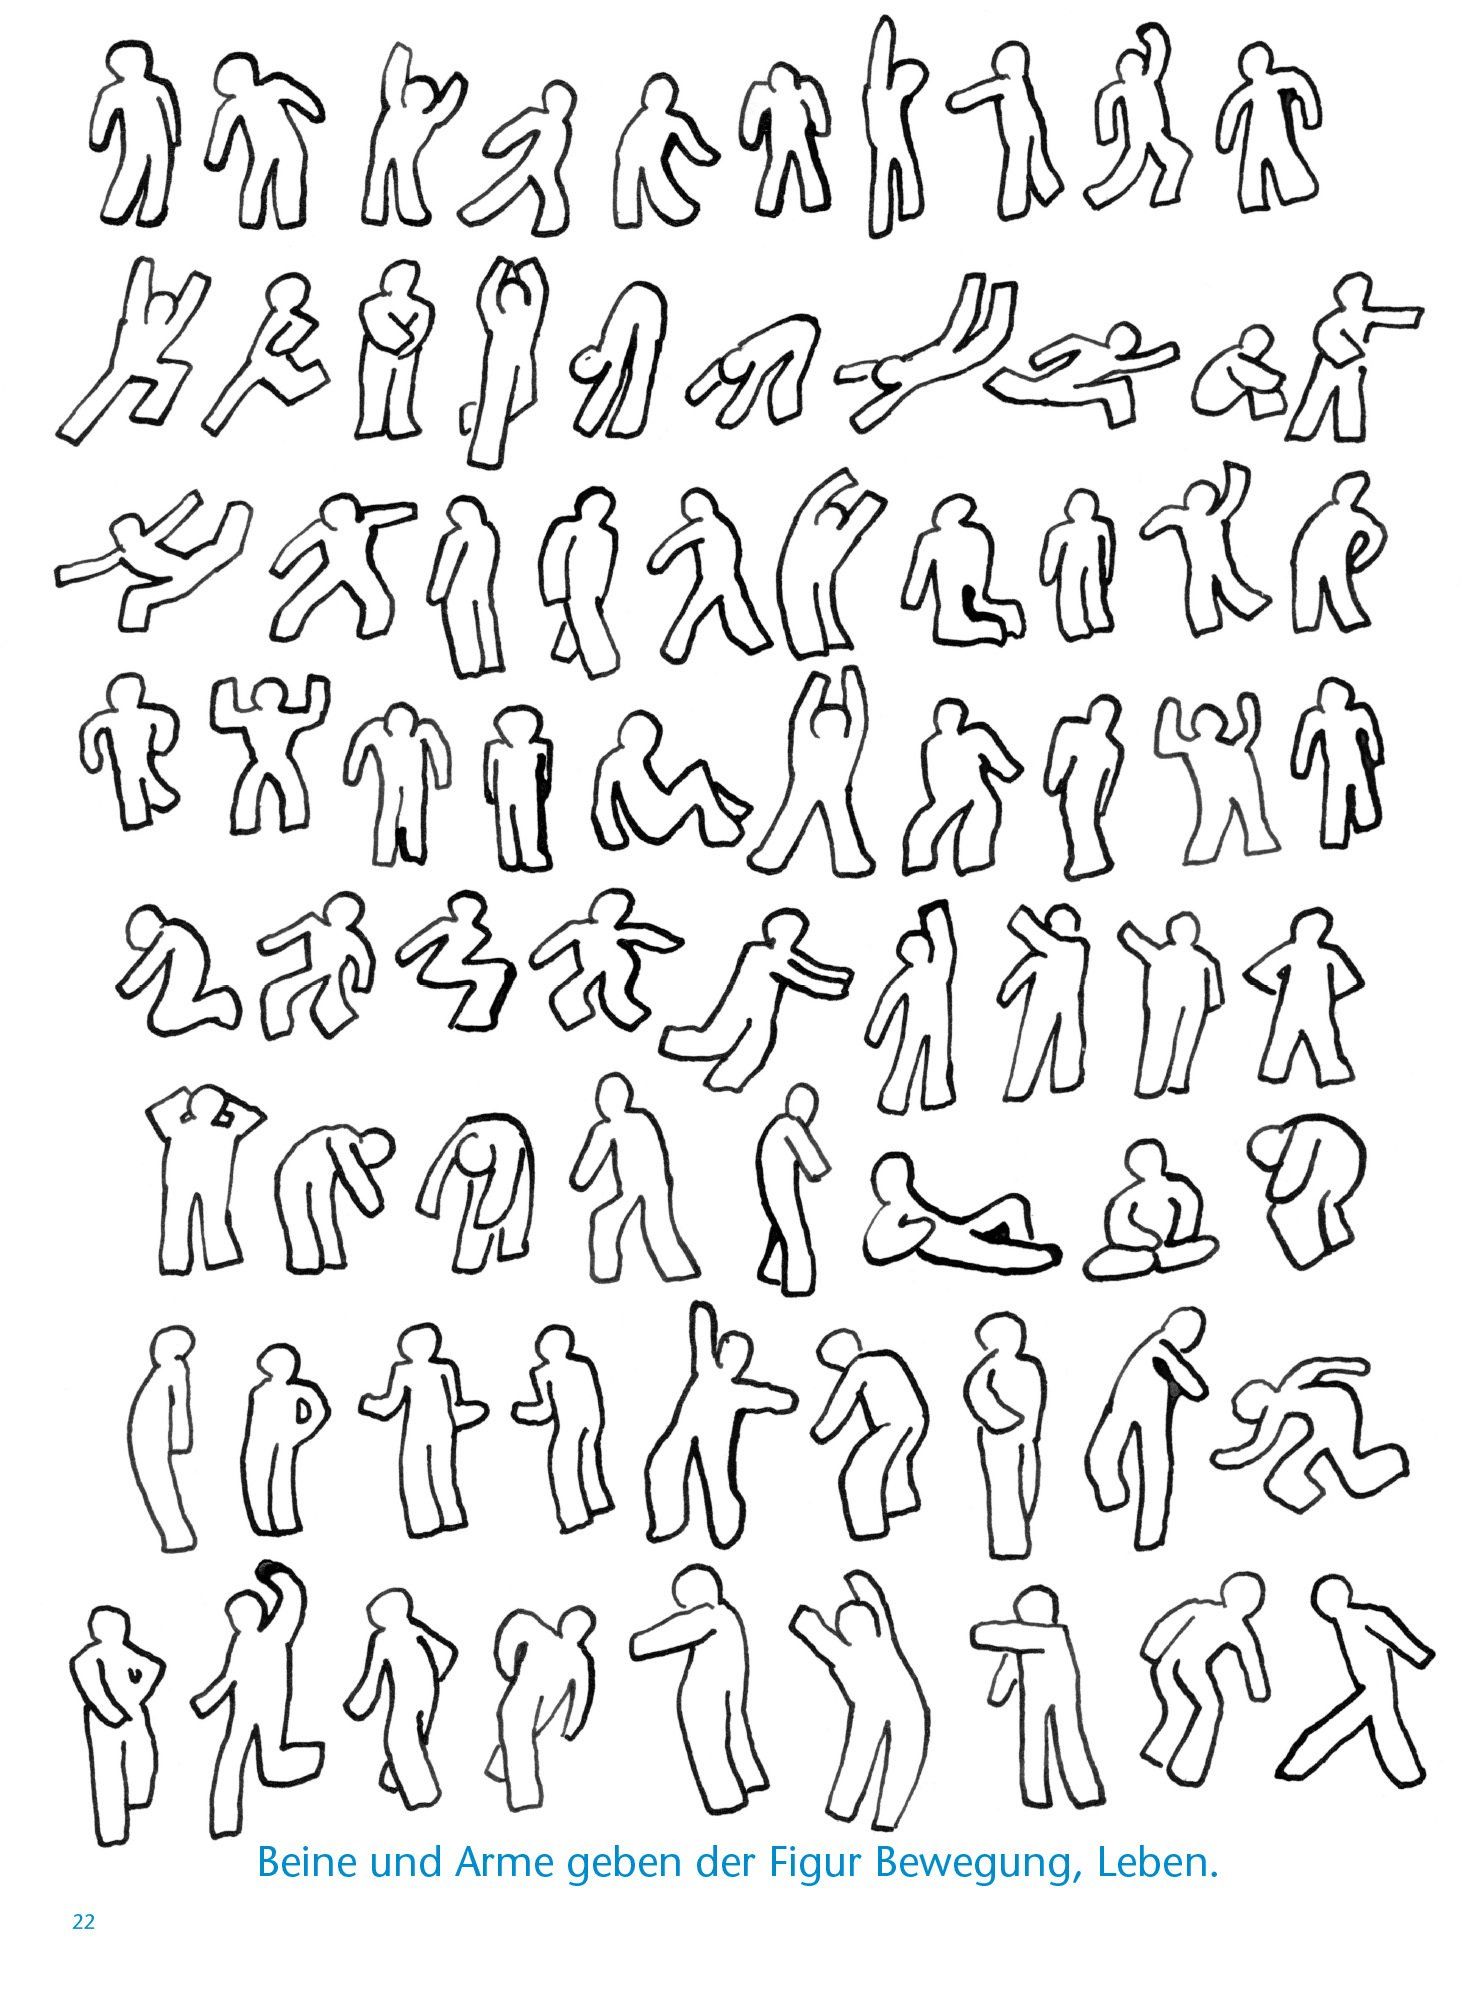 Beine und Arme geben der Figur Bewegung, Leben.
22